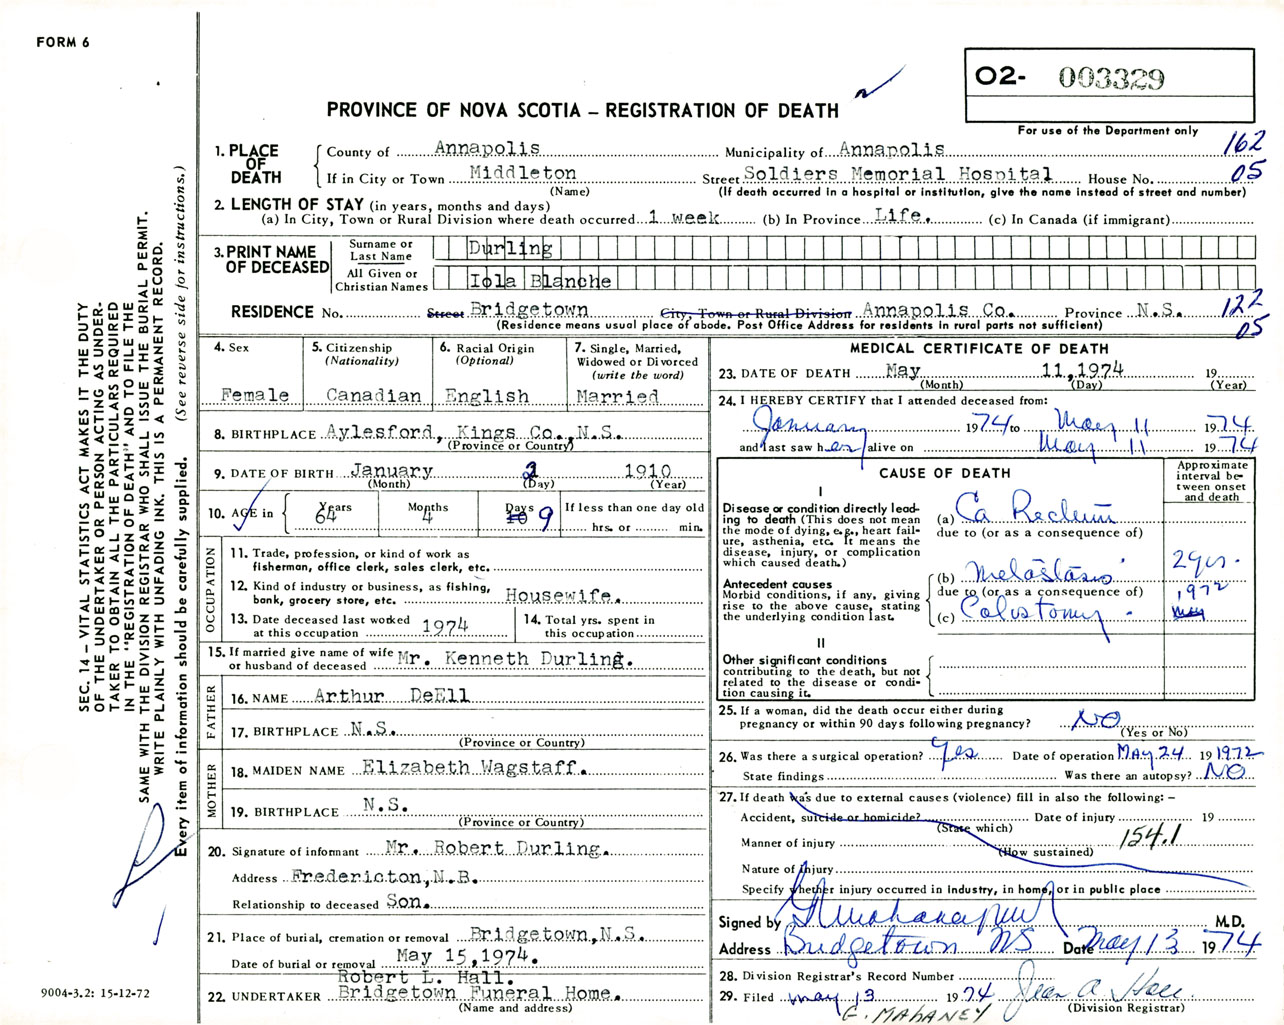 FORM 6
O2- 003329
For use of the Department only
PROVINCE OF NOVA SCOTIA – REGISTRATION OF DEATH
162
05
1. PLACE OF DEATH
County of Annapolis Municipality of Annapolis
If in City or Town Middleton Street Soldiers Memorial Hospital House No.
(Name) (If death occurred in a hospital or institution, give the name instead of street and number)
2. LENGTH OF STAY (in years, months and days)
(a) In City, Town or Rural Division where death occurred 1 week (b) In Province Life. (c) In Canada (if immigrant)
3. PRINT NAME OF DECEASED
Surname or Last Name Durling
All Given or Christian Names Iola Blanche
RESIDENCE No. Street Bridgetown City, Town or Rural Division Annapolis Co. Province N.S. 122
05
(Residence means usual place of abode. Post Office Address for residents in rural parts not sufficient)
4. Sex
Female
5. Citizenship
(Nationality)
Canadian
6. Racial Origin
(Optional)
English
7. Single, Married,
Widowed or Divorced
(write the word)
Married
8. BIRTHPLACE Aylesford, Kings Co., N.S.
(Province or Country)
9. DATE OF BIRTH January 2 1910
(Month) (Day) (Year)
10. AGE in
Years 64
Months 4
Days 10 9
If less than one day old
hrs. or min.
OCCUPATION
11. Trade, profession, or kind of work as
fisherman, office clerk, sales clerk, etc.
12. Kind of industry or business, as fishing,
bank, grocery store, etc. Housewife.
13. Date deceased last worked
at this occupation 1974
14. Total yrs. spent in
this occupation
15. If married give name of wife
or husband of deceased Mr. Kenneth Durling.
FATHER
16. NAME Arthur DeEll
17. BIRTHPLACE N.S.
(Province or Country)
MOTHER
18. MAIDEN NAME Elizabeth Wagstaff.
19. BIRTHPLACE N.S.
(Province or Country)
20. Signature of informant Mr. Robert Durling.
Address Fredericton, N.B.
Relationship to deceased Son.
21. Place of burial, cremation or removal Bridgetown, N.S.
Date of burial or removal May 15, 1974.
Robert L. Hall.
22. UNDERTAKER Bridgetown Funeral Home.
(Name and address)
MEDICAL CERTIFICATE OF DEATH
23. DATE OF DEATH May 11, 1974 19
(Month) (Day) (Year)
24. I HEREBY CERTIFY that I attended deceased from:
January 1974 to May 11 1974
and last saw her alive on May 11 1974
CAUSE OF DEATH
Approximate
interval be-
tween onset
and death
I
Disease or condition directly lead-
ing to death (This does not mean
the mode of dying, e.g., heart fail-
ure, asthenia, etc. It means the
disease, injury, or complication
which caused death.)
(a) Ca Rectum
due to (or as a consequence of)
Antecedent causes
Morbid conditions, if any, giving
rise to the above cause, stating
the underlying condition last.
(b) Metastasis 2 yrs.
due to (or as a consequence of) 1972
(c) Colostomy May
II
Other significant conditions
contributing to the death, but not
related to the disease or condi-
tion causing it.
25. If a woman, did the death occur either during
pregnancy or within 90 days following pregnancy? NO
(Yes or No)
26. Was there a surgical operation? Yes Date of operation MAY 24 19 1972
State findings Was there an autopsy? NO
27. If death was due to external causes (violence) fill in also the following: –
Accident, suicide or homicide? Date of injury 19
(State which)
Manner of injury 154.1
(How sustained)
Nature of injury
Specify whether injury occurred in industry, in home, or in public place
Signed by M.D.
Address Bridgetown NS Date May 13 1974
28. Division Registrar's Record Number
29. Filed May 13 1974 Jean A. Hall
(Division Registrar)
E. MAHANEY
SEC. 14 – VITAL STATISTICS ACT MAKES IT THE DUTY
OF THE UNDERTAKER OR PERSON ACTING AS UNDER-
TAKER TO OBTAIN ALL THE PARTICULARS REQUIRED
IN THE "REGISTRATION OF DEATH" AND TO FILE THE
SAME WITH THE DIVISION REGISTRAR WHO SHALL ISSUE THE BURIAL PERMIT.
WRITE PLAINLY WITH UNFADING INK. THIS IS A PERMANENT RECORD.
Every item of information should be carefully supplied. (See reverse side for instructions.)
9004-3.2: 15-12-72